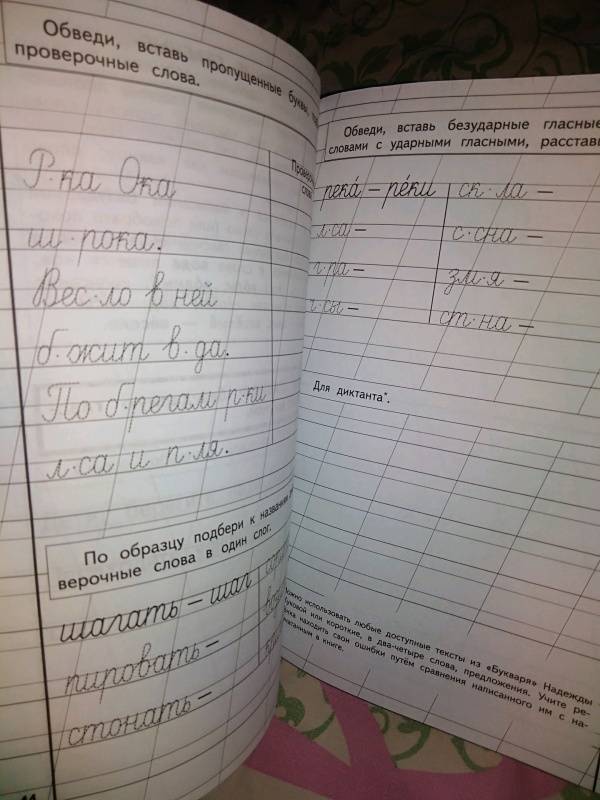 Обведи, вставь пропущенные буквы,
проверочные слова.
Р·ка Ока
ш·рока.
Вес·ло в ней
б·жит в·да.
По б·регам р·ки
л·са и п·ля.
По образцу подбери к названи
верочные слова в один слог.
шагать – шаг
пировать –
стонать –
Обведи, вставь безударные гласные
словами с ударными гласными, расстав
река́ – ре́ки
ск·ла –
л·са –
с·сна –
г·ра –
зм·я –
ст·на –
Для диктанта*.
ожно использовать любые доступные тексты из «Букваря» Надежды
буковой или короткие, в два-четыре слова, предложения. Учите ре-
бёнка находить свои ошибки путём сравнения написанного им с на-
печатанным в книге.